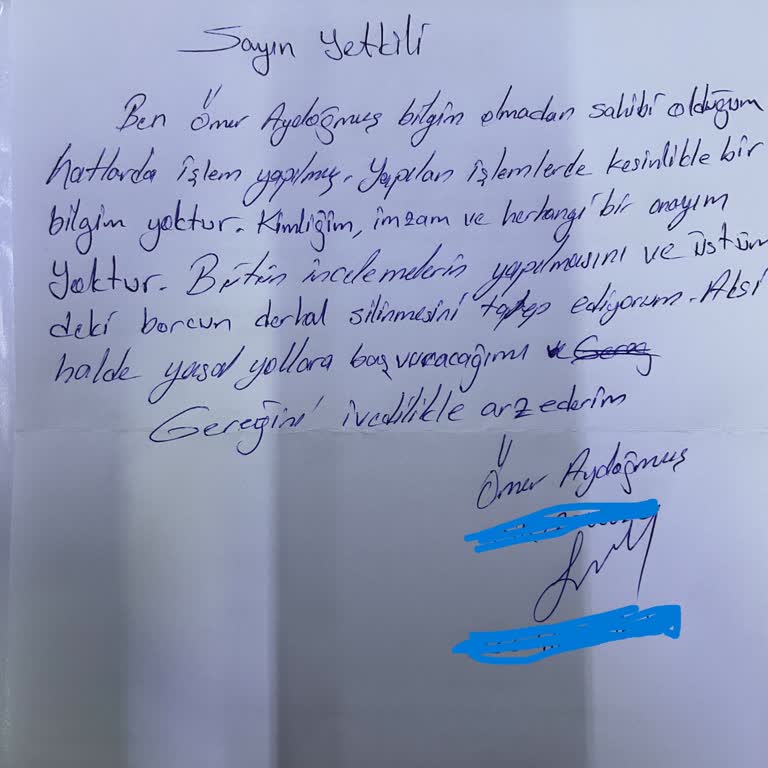 Sayın Yetkili
Ben Ömer Aydoğmuş bilgim olmadan sahibi olduğum
hatlarda işlem yapılmış. Yapılan işlemlerde kesinlikle bir
bilgim yoktur. Kimliğim, imzam ve herhangi bir onayım
Yoktur. Bütün incelemelerin yapılmasını ve üstüm
deki borcun derhal silinmesini talep ediyorum. Aksi
halde yasal yollara başvuracağımı
Gereğini ivedilikle arzederim
Ömer Aydoğmuş